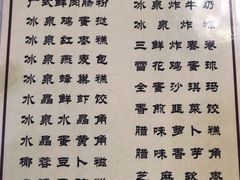 广式鲜肉肠粉
冰泉鸡蛋挞
冰泉红枣糕
冰泉燕麦包
冰泉蜂巢糕
水晶鲜虾饺
水晶蛋黄角
椰蓉豆
冰泉炸牛奶
冰泉炸
三鲜炸春卷
雪花鸡蛋球
全蛋沙琪玛
香煎韭菜饺
腊味萝卜糕
腊味香芋角
芝麻